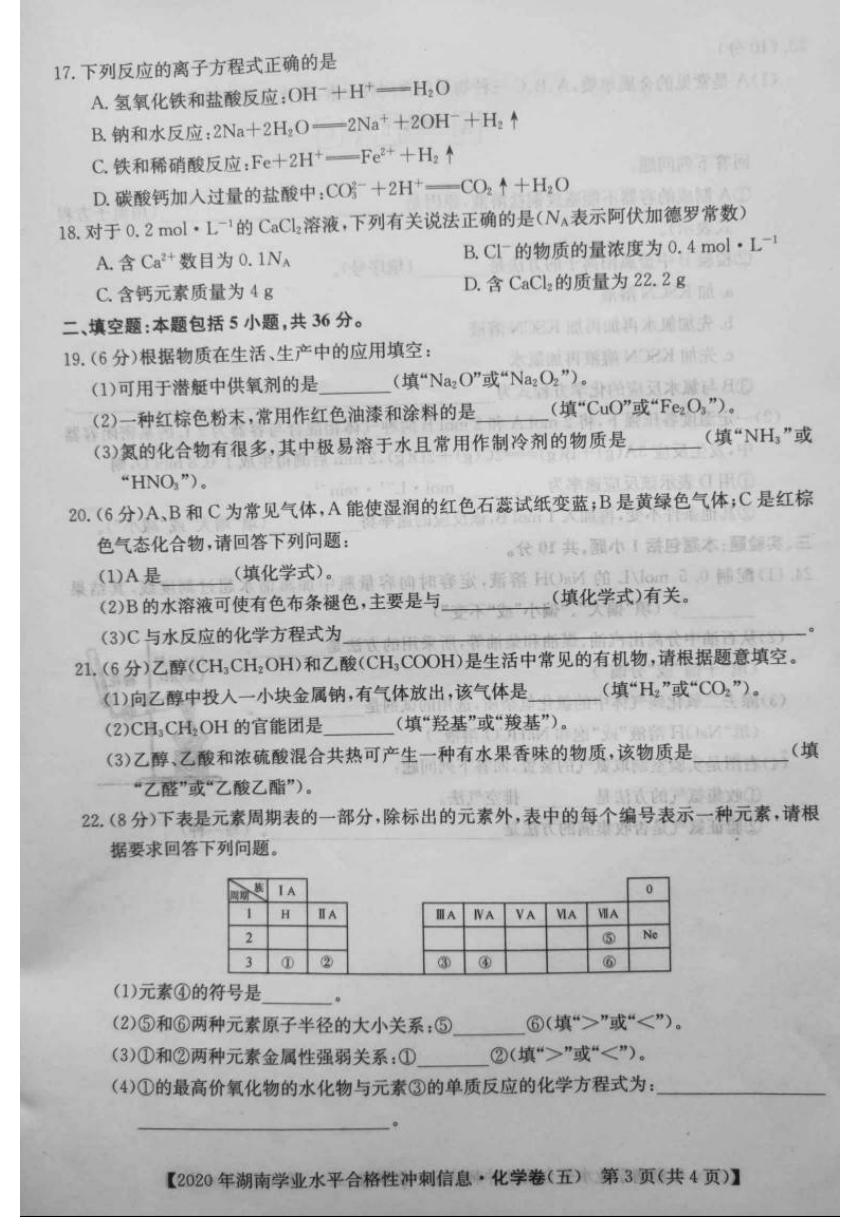 17.下列反应的离子方程式正确的是
A.氢氧化铁和盐酸反应:OH⁻+H⁺══H₂O
B.钠和水反应:2Na+2H₂O══2Na⁺+2OH⁻+H₂↑
C.铁和稀硝酸反应:Fe+2H⁺══Fe²⁺+H₂↑
D.碳酸钙加入过量的盐酸中:CO₃²⁻+2H⁺══CO₂↑+H₂O
18.对于0.2 mol·L⁻¹的CaCl₂溶液,下列有关说法正确的是(Nᴀ表示阿伏加德罗常数)
A.含Ca²⁺数目为0.1Nᴀ B.Cl⁻的物质的量浓度为0.4 mol·L⁻¹
C.含钙元素质量为4 g D.含CaCl₂的质量为22.2 g
二、填空题:本题包括5小题,共36分。
19.(6分)根据物质在生活、生产中的应用填空:
(1)可用于潜艇中供氧剂的是________(填“Na₂O”或“Na₂O₂”)。
(2)一种红棕色粉末,常用作红色油漆和涂料的是________(填“CuO”或“Fe₂O₃”)。
(3)氮的化合物有很多,其中极易溶于水且常用作制冷剂的物质是________(填“NH₃”或
“HNO₃”)。
20.(6分)A、B和C为常见气体,A能使湿润的红色石蕊试纸变蓝;B是黄绿色气体;C是红棕
色气态化合物,请回答下列问题:
(1)A是________(填化学式)。
(2)B的水溶液可使有色布条褪色,主要是与________(填化学式)有关。
(3)C与水反应的化学方程式为________________。
21.(6分)乙醇(CH₃CH₂OH)和乙酸(CH₃COOH)是生活中常见的有机物,请根据题意填空。
(1)向乙醇中投入一小块金属钠,有气体放出,该气体是________(填“H₂”或“CO₂”)。
(2)CH₃CH₂OH的官能团是________(填“羟基”或“羧基”)。
(3)乙醇、乙酸和浓硫酸混合共热可产生一种有水果香味的物质,该物质是________(填
“乙醛”或“乙酸乙酯”)。
22.(8分)下表是元素周期表的一部分,除标出的元素外,表中的每个编号表示一种元素,请根
据要求回答下列问题。
周期 族 ⅠA 0
1 H ⅡA ⅢA ⅣA ⅤA ⅥA ⅦA
2 ⑤ Ne
3 ① ② ③ ④ ⑥
(1)元素④的符号是________。
(2)⑤和⑥两种元素原子半径的大小关系:⑤________⑥(填“>”或“<”)。
(3)①和②两种元素金属性强弱关系:①________②(填“>”或“<”)。
(4)①的最高价氧化物的水化物与元素③的单质反应的化学方程式为:________________
________________。
【2020年湖南学业水平合格性冲刺信息·化学卷(五) 第3页(共4页)】